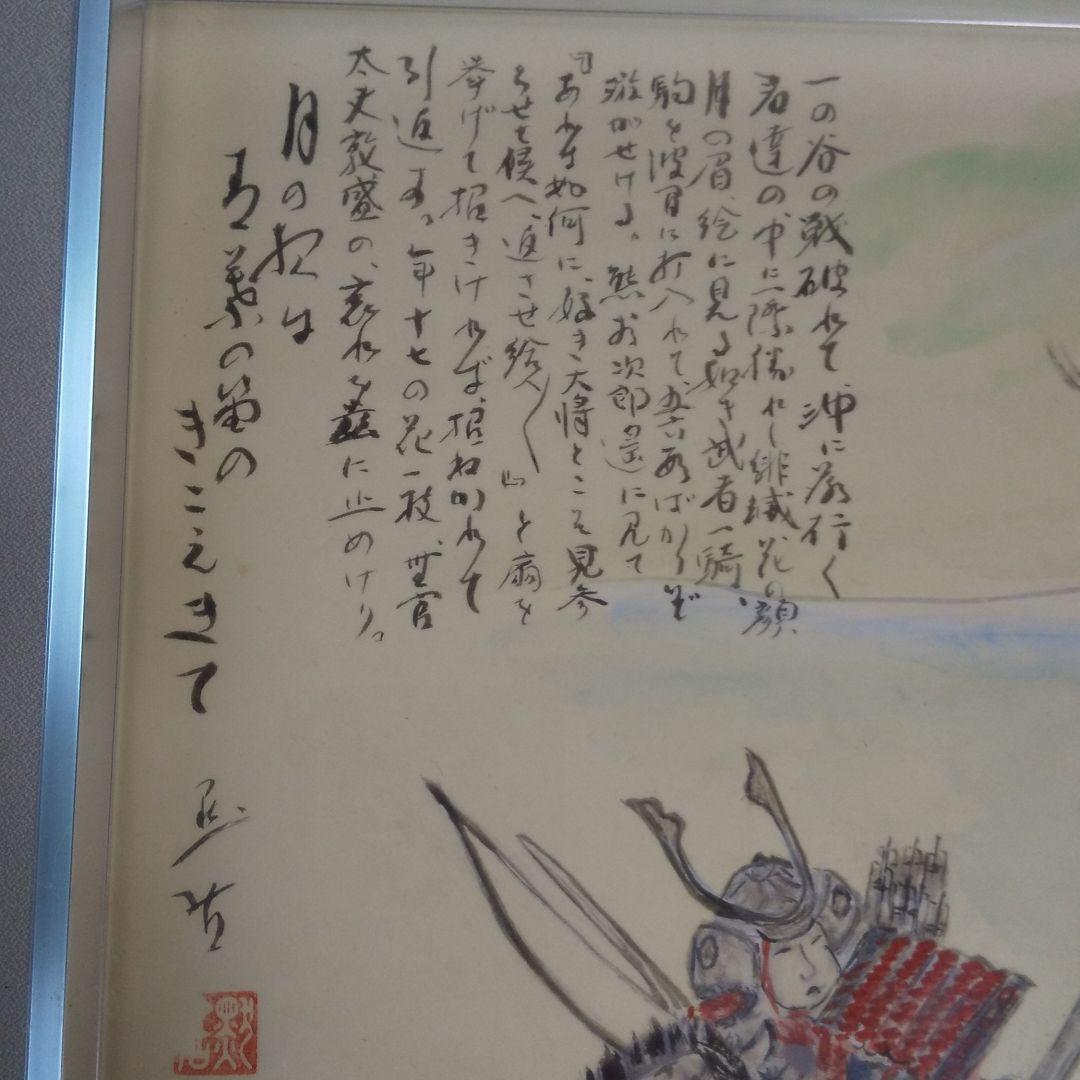 一の谷の戦破れて、沖に落行く
君達の中に際勝れし緋縅、花の顔
月の眉、絵に見る如き武者一騎、
駒を波間に打入れて、五六段ばかりぞ
游がせける。熊谷次郎遥に見て
『あれは如何に、好き大将とこそ見参
らせて候へ、返させ給へ〱』と扇を
挙げて招きければ、招ねかれて
引返す。年十七の花一枝、無官
太夫敦盛の、哀れを茲に止めけり。
月の夜は
青葉の笛の
きこえきて